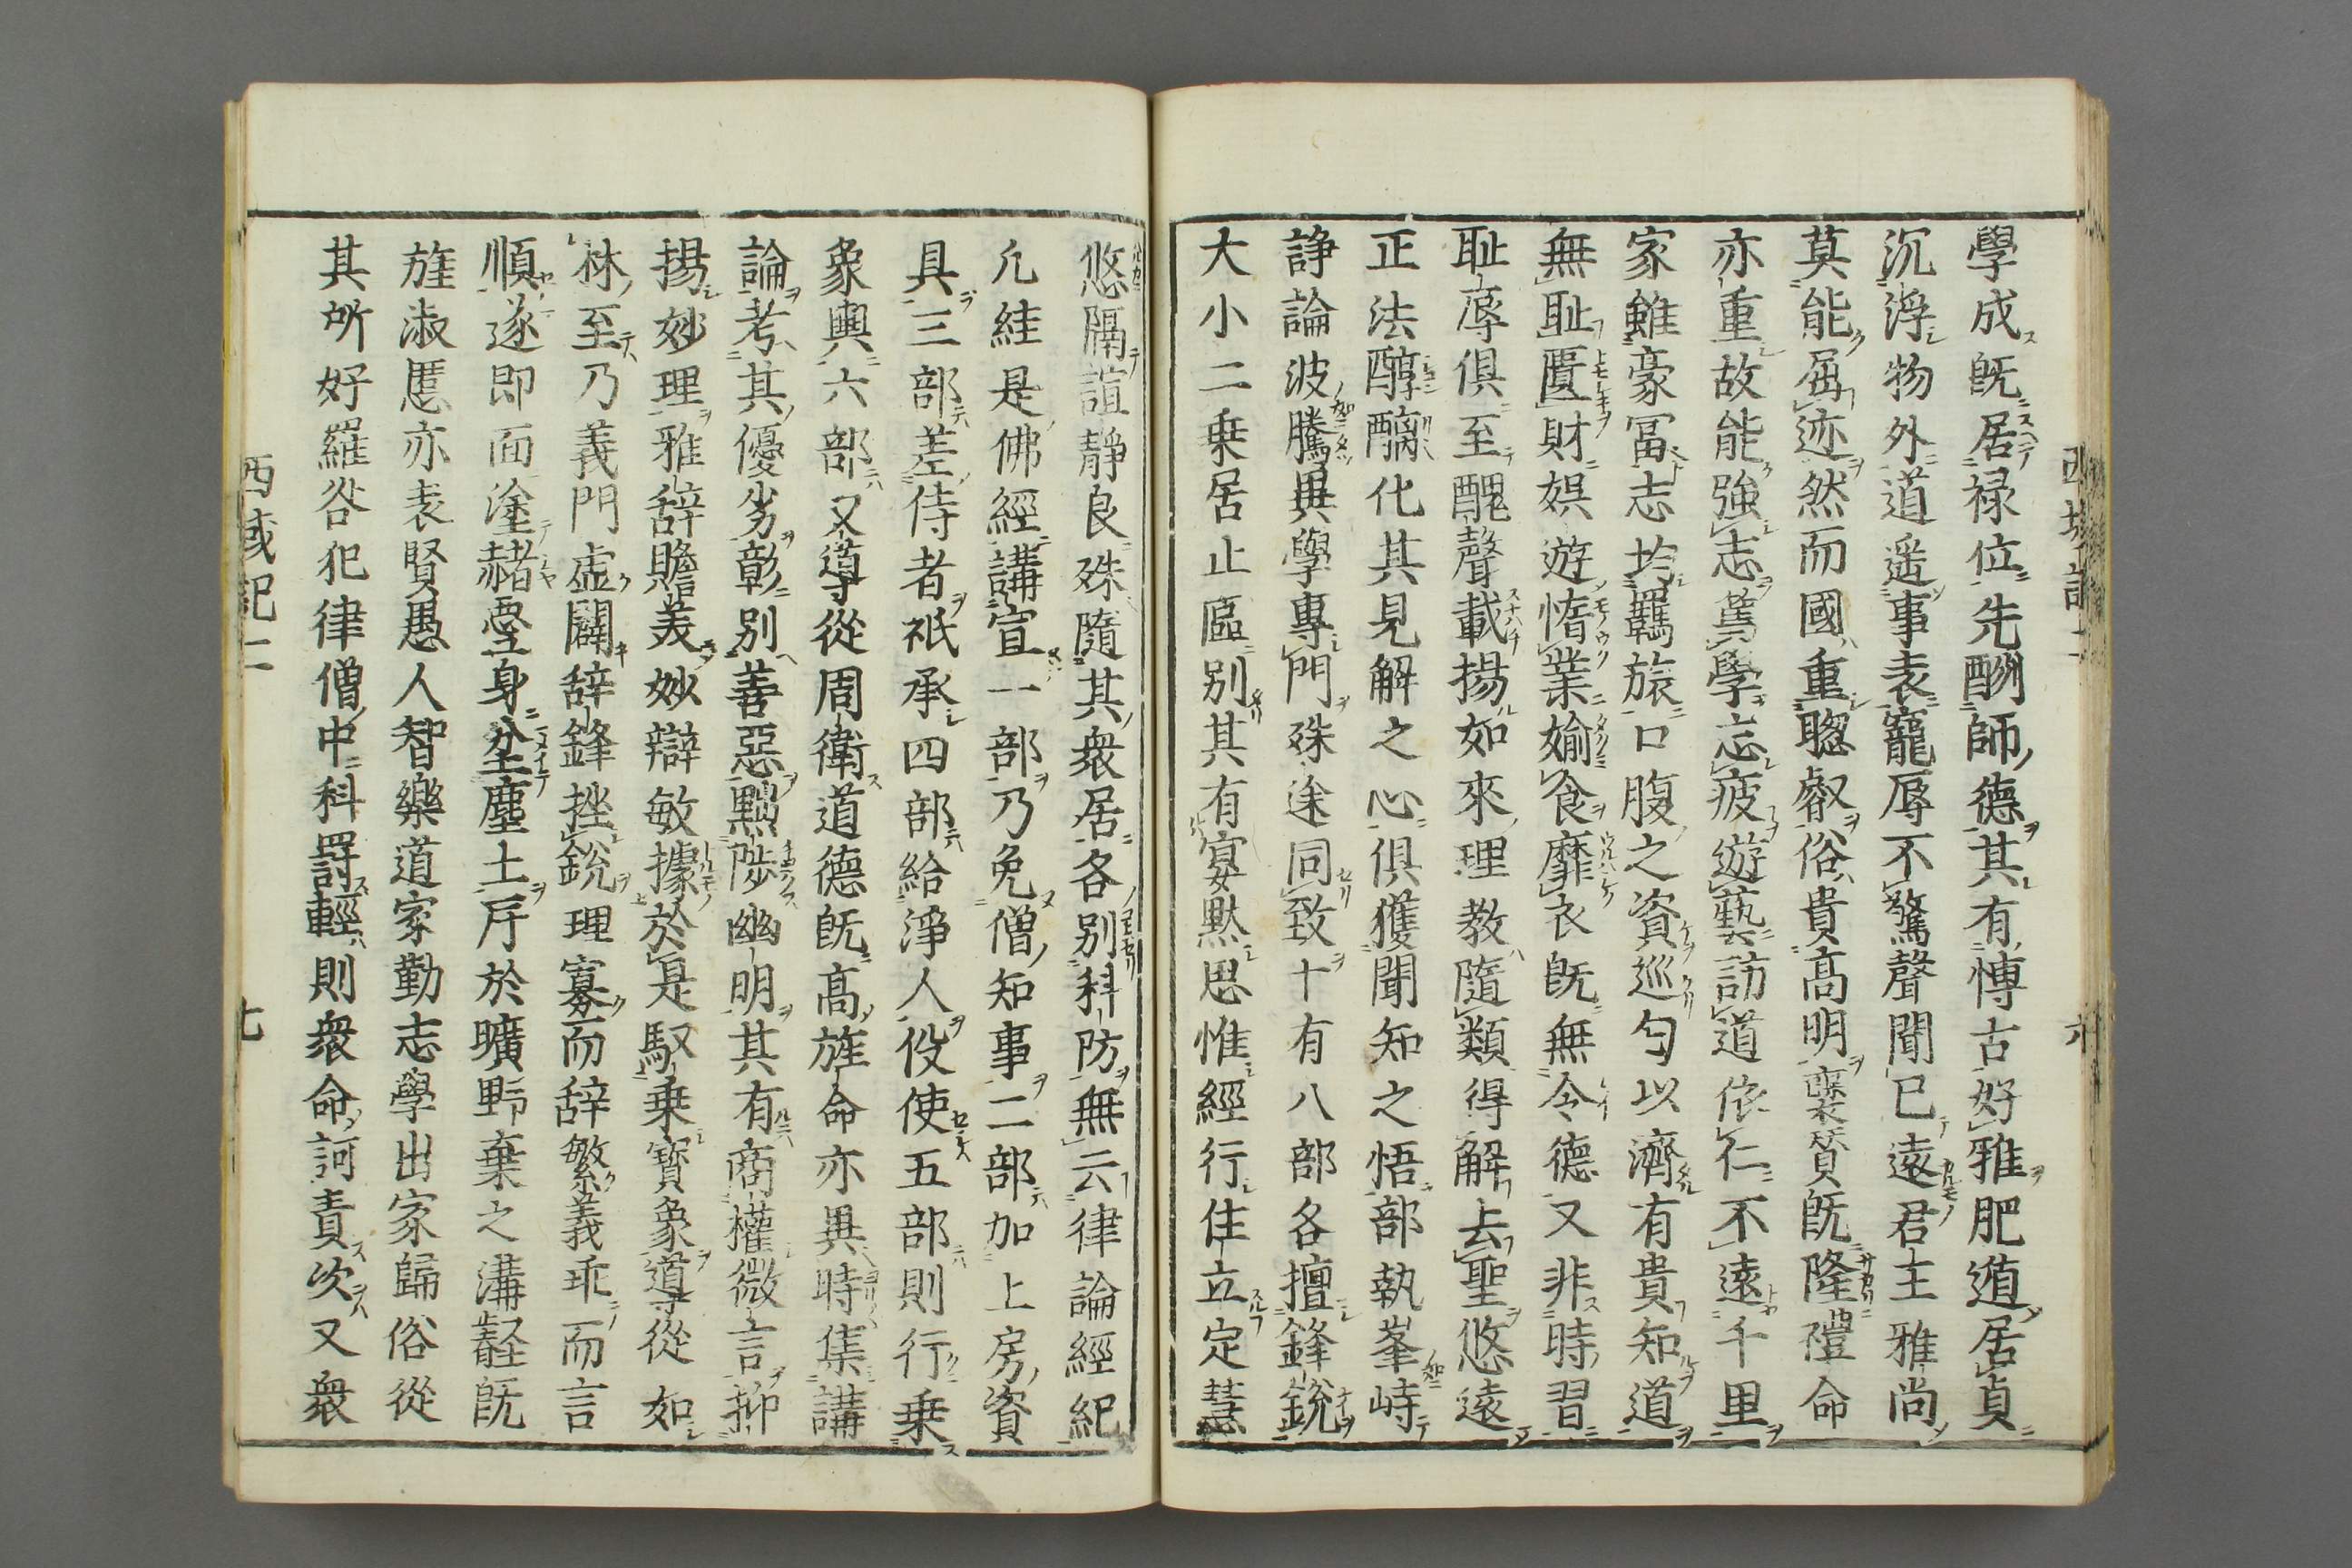 西域記二
六
學成既居祿位先酬師德其有愽古好雅肥遁居貞
沉浮物外道遥事表寵辱不驚聲聞已遠君主雅尚
莫能屈迹然而國重聰叡俗貴高明褒贊既隆禮命
亦重故能強志篤學忘疲遊藝訪道依仁不遠千里
家雖豪冨志均羈旅口腹之資巡匃以濟有貴知道
無耻匱財娯遊惰業媮食靡衣既無令德又非時習
耻辱俱至醜聲載揚如來理教隨類得解去聖悠遠
正法醇醨化其見解之心俱獲聞知之悟部執峯峙
諍論波騰異學專門殊途同致十有八部各擅鋒銳
大小二乗居止區别其有宴默思惟經行住立定慧
悠隔諠靜良殊隨其衆居各别科防無云律論經紀
凡絓是佛經講宣一部乃免僧知事二部加上房資
具三部差侍者祇承四部給淨人役使五部則行乗
象輿六部又導從周衛道德既高旌命亦異時集講
論考其優劣彰别善惡黜陟幽明其有商㩲微言抑
揚妙理雅辞贍美妙辯敏據於是馭乗寳象導從如
林至乃義門虚闢辞鋒挫銳理寡而辞繁義乖而言
順遂即面塗赭堊身坌塵土斥於曠野棄之溝壑既
旌淑慝亦表賢愚人智樂道家勤志學出家歸俗從
其所好羅咎犯律僧中科罸輕則衆命訶責次又衆
西域記二
七